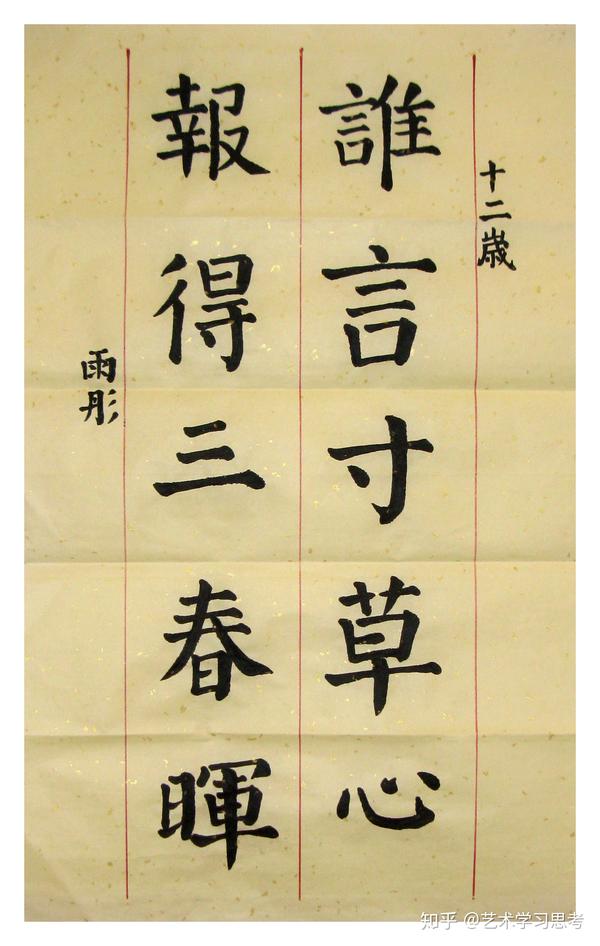 十二歲
誰言寸草心
報得三春暉
雨彤
知乎 @艺术学习思考